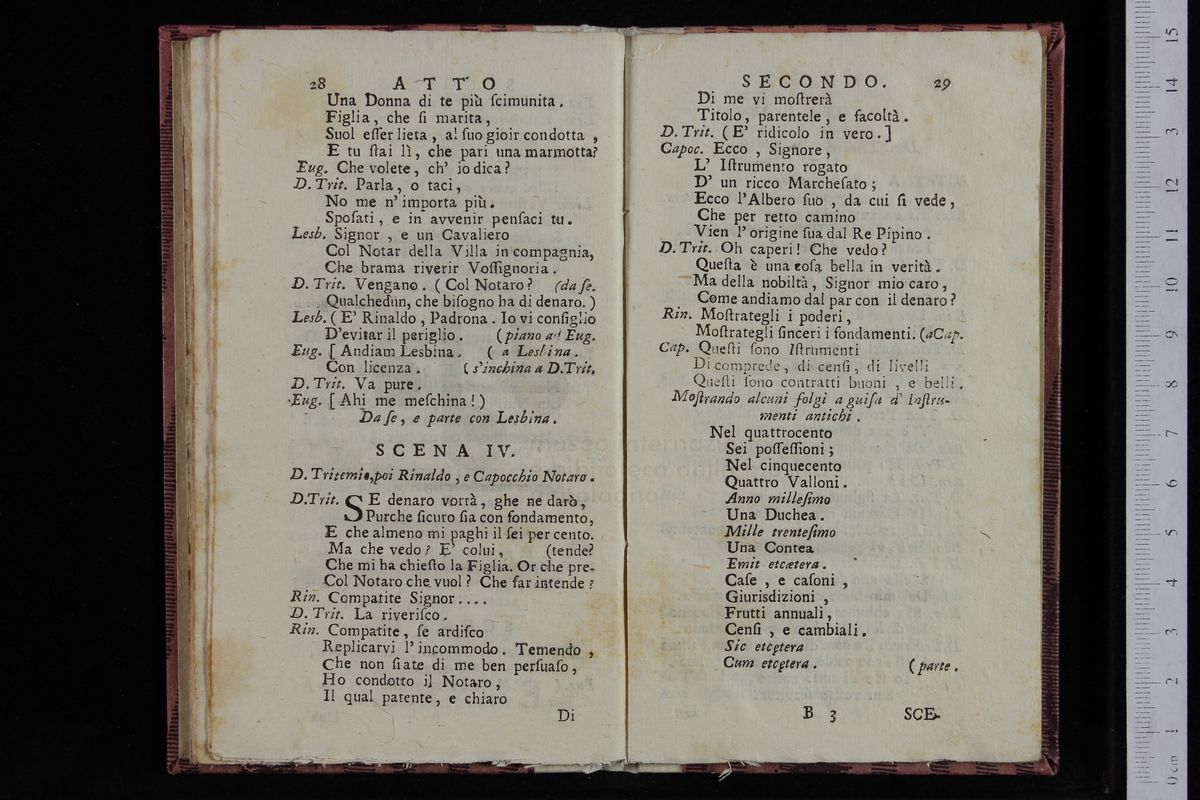 28 ATTO
Una Donna di te più ſcimunita.
Figlia, che ſi marita,
Suol eſſer lieta, al ſuo gioir condotta,
E tu ſtai lì, che pari una marmotta?
Eug. Che volete, ch' io dica?
D. Trit. Parla, o taci,
No me n' importa più.
Spoſati, e in avvenir penſaci tu.
Lesb. Signor, e un Cavaliero
Col Notar della Villa in compagnia,
Che brama riverir Voſſignoria.
D. Trit. Vengano. (Col Notaro? (da ſe.
Qualchedun, che biſogno ha di denaro.)
Lesb. (E' Rinaldo, Padrona. Io vi conſiglio
D'evitar il periglio. (piano ad Eug.
Eug. [Andiam Lesbina. (a Lesbina.
Con licenza. (s'inchina a D.Trit.
D. Trit. Va pure.
Eug. [Ahi me meſchina!)
Da ſe, e parte con Lesbina.
SCENA IV.
D. Tritemio, poi Rinaldo, e Capocchio Notaro.
D.Trit. SE denaro vorrà, ghe ne darò,
Purche ſicuro ſia con fondamento,
E che almeno mi paghi il ſei per cento.
Ma che vedo? E' colui, (tende?
Che mi ha chieſto la Figlia. Or che pre-
Col Notaro che vuol? Che far intende?
Rin. Compatite Signor....
D. Trit. La riveriſco.
Rin. Compatite, ſe ardiſco
Replicarvi l' incommodo. Temendo,
Che non ſiate di me ben perſuaſo,
Ho condotto il Notaro,
Il qual patente, e chiaro
Di
SECONDO. 29
Di me vi moſtrerà
Titolo, parentele, e facoltà.
D. Trit. (E' ridicolo in vero.]
Capoc. Ecco, Signore,
L' Iſtrumento rogato
D' un ricco Marcheſato;
Ecco l'Albero ſuo, da cui ſi vede,
Che per retto camino
Vien l' origine ſua dal Re Pipino.
D. Trit. Oh caperi! Che vedo?
Queſta è una coſa bella in verità.
Ma della nobiltà, Signor mio caro,
Come andiamo dal par con il denaro?
Rin. Moſtrategli i poderi,
Moſtrategli ſinceri i fondamenti. (a Cap.
Cap. Queſti ſono Iſtrumenti
Di comprede, di cenſi, di livelli
Queſti ſono contratti buoni, e belli.
Moſtrando alcuni folgi a guiſa d' inſtru-
menti antichi.
Nel quattrocento
Sei poſſeſſioni;
Nel cinquecento
Quattro Valloni.
Anno milleſimo
Una Duchea.
Mille trenteſimo
Una Contea
Emit etcætera.
Caſe, e caſoni,
Giurisdizioni,
Frutti annuali,
Cenſi, e cambiali.
Sic etcętera
Cum etcętera. (parte.
B 3 SCE-
15
14
13
12
11
10
9
8
7
6
5
4
3
2
1
0 cm